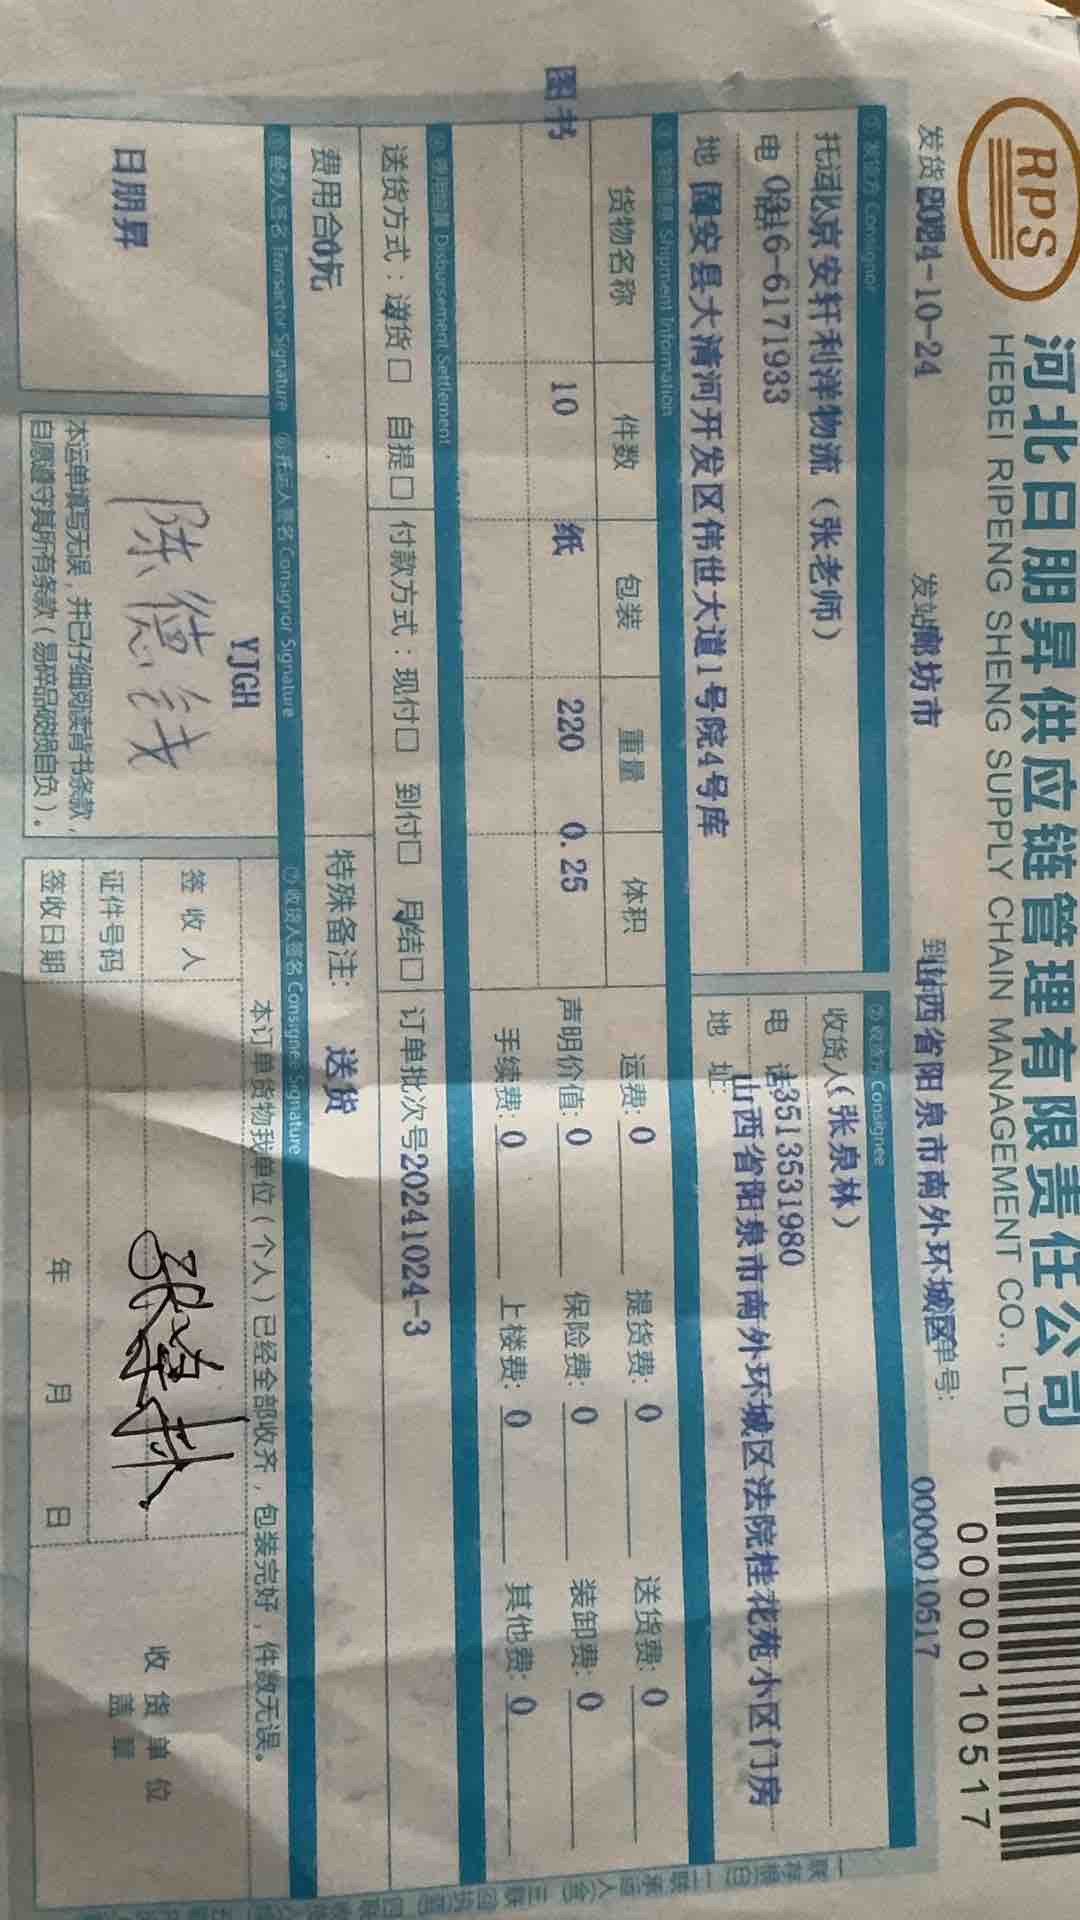 RPS
河北日朋昇供应链管理有限责任公司
HEBEI RIPENG SHENG SUPPLY CHAIN MANAGEMENT CO., LTD
0000010517
发货 2024-10-24 发站 廊坊市 到 山西省阳泉市南外环城区 单号: 0000010517
① 发货方 Consignor
② 收货方 Consignee
托运 北京安轩利洋物流（张老师）
收货人 （张泉林）
电 话 0316-6171933
电 话 3513531980
地 固安县大清河开发区伟世大道1号院4号库
地 址: 山西省阳泉市南外环城区法院桂花苑小区门房
Shipment Information
货物名称 件数 包装 重量 体积
图书 10 纸 220 0.25
运费: 0 提货费: 0 送货费: 0
声明价值: 0 保险费: 0 装卸费: 0
手续费: 0 上楼费: 0 其他费: 0
Disbursement Settlement
送货方式: 送货□ 自提□ 付款方式: 现付□ 到付□ 月结□ 订单批次号 20241024-3
费用合 0元
特殊备注: 送货
Transactor Signature
⑥ 托运人签名 Consignor Signature
⑦ 收货人签名 Consignee Signature
日朋昇
YJGH
本运单填写无误，并已仔细阅读背书条款，
自愿遵守其所有条款（易碎品破损自负）。
本订单货物我单位（个人）已经全部收齐，包装完好，件数无误。
签收人
证件号码
签收日期 年 月 日
收货单位
盖章